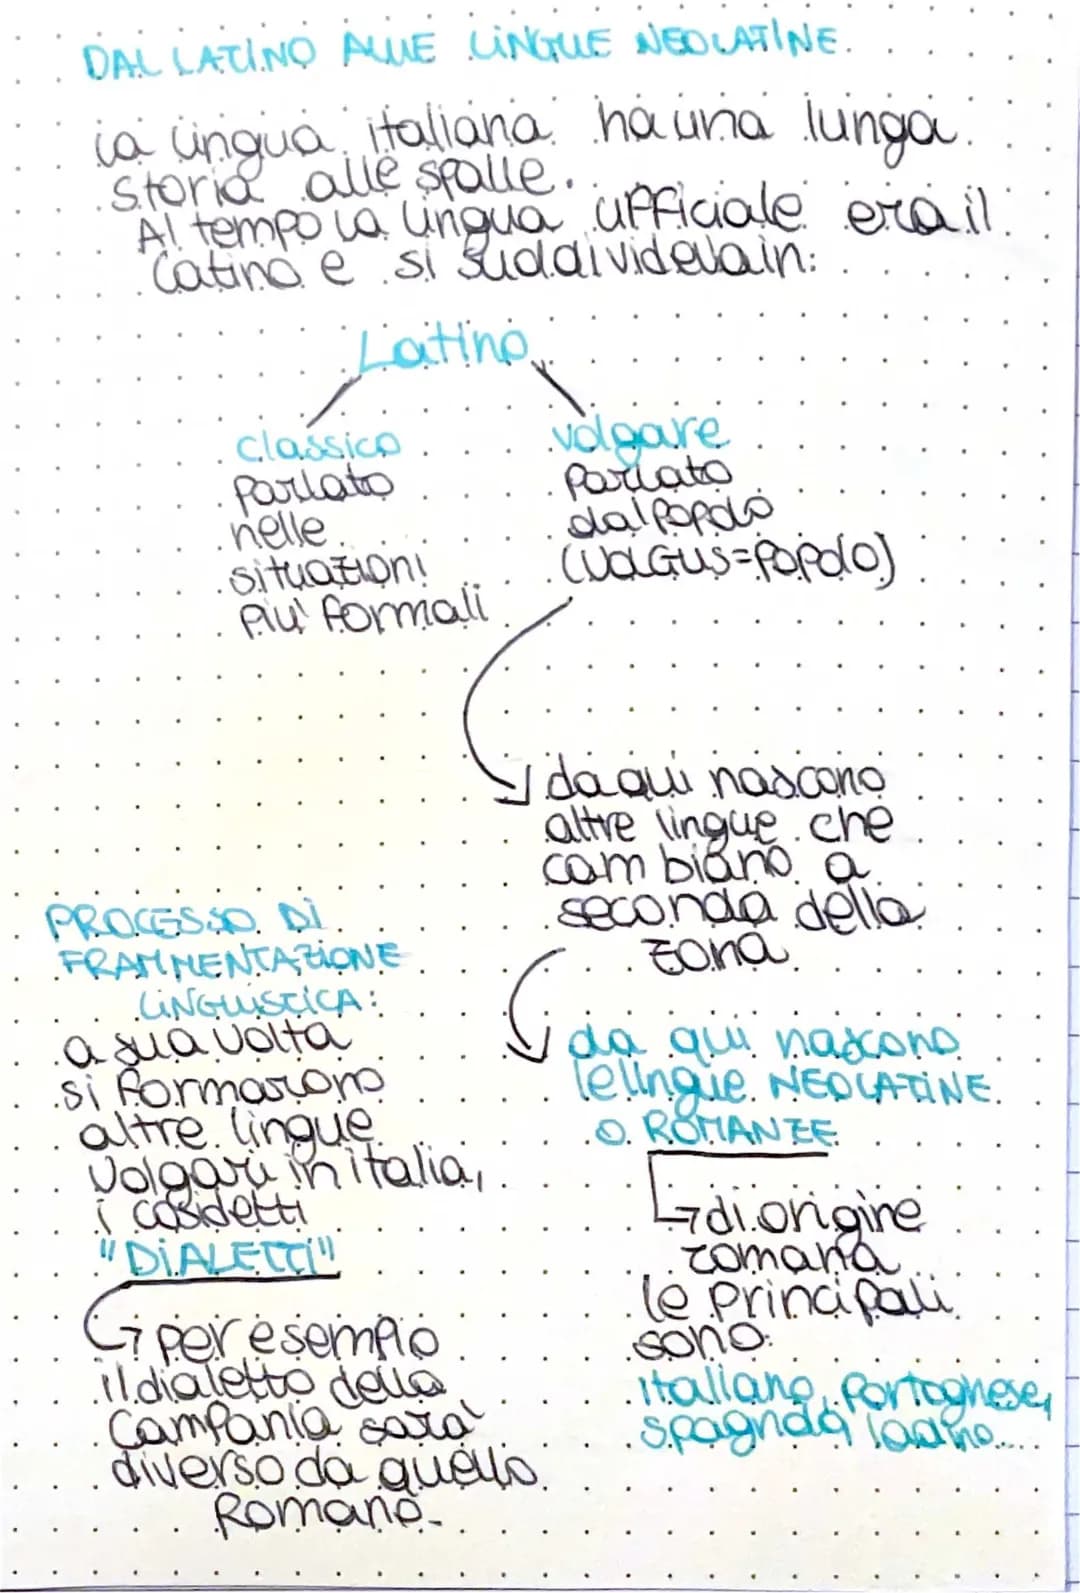 DAL LATINO ALLE LINGUE NEOLATINE.
la lingua italiana ha una lunga
storia alle spalle.
Al tempo la lingua ufficiale era il
latino e si suddivideva in:
Latino
classico
parlato
nelle
situazioni
più formali
volgare
parlato
dal popolo
(VOLGUS=POPOLO)
da qui nascono
altre lingue che
cambiano a
seconda della
zona
da qui nascono
le lingue NEOLATINE
O ROMANZE
di origine
romana
le principali
sono:
italiano, portoghese,
spagnola, ladino...
PROCESSO DI
FRAMMENTAZIONE
LINGUISTICA:
a sua volta
si formarono
altre lingue
volgari in italia,
i cosidetti
"DIALETTI"
per esempio
il dialetto della
Campania sarà
diverso da quello
Romano.